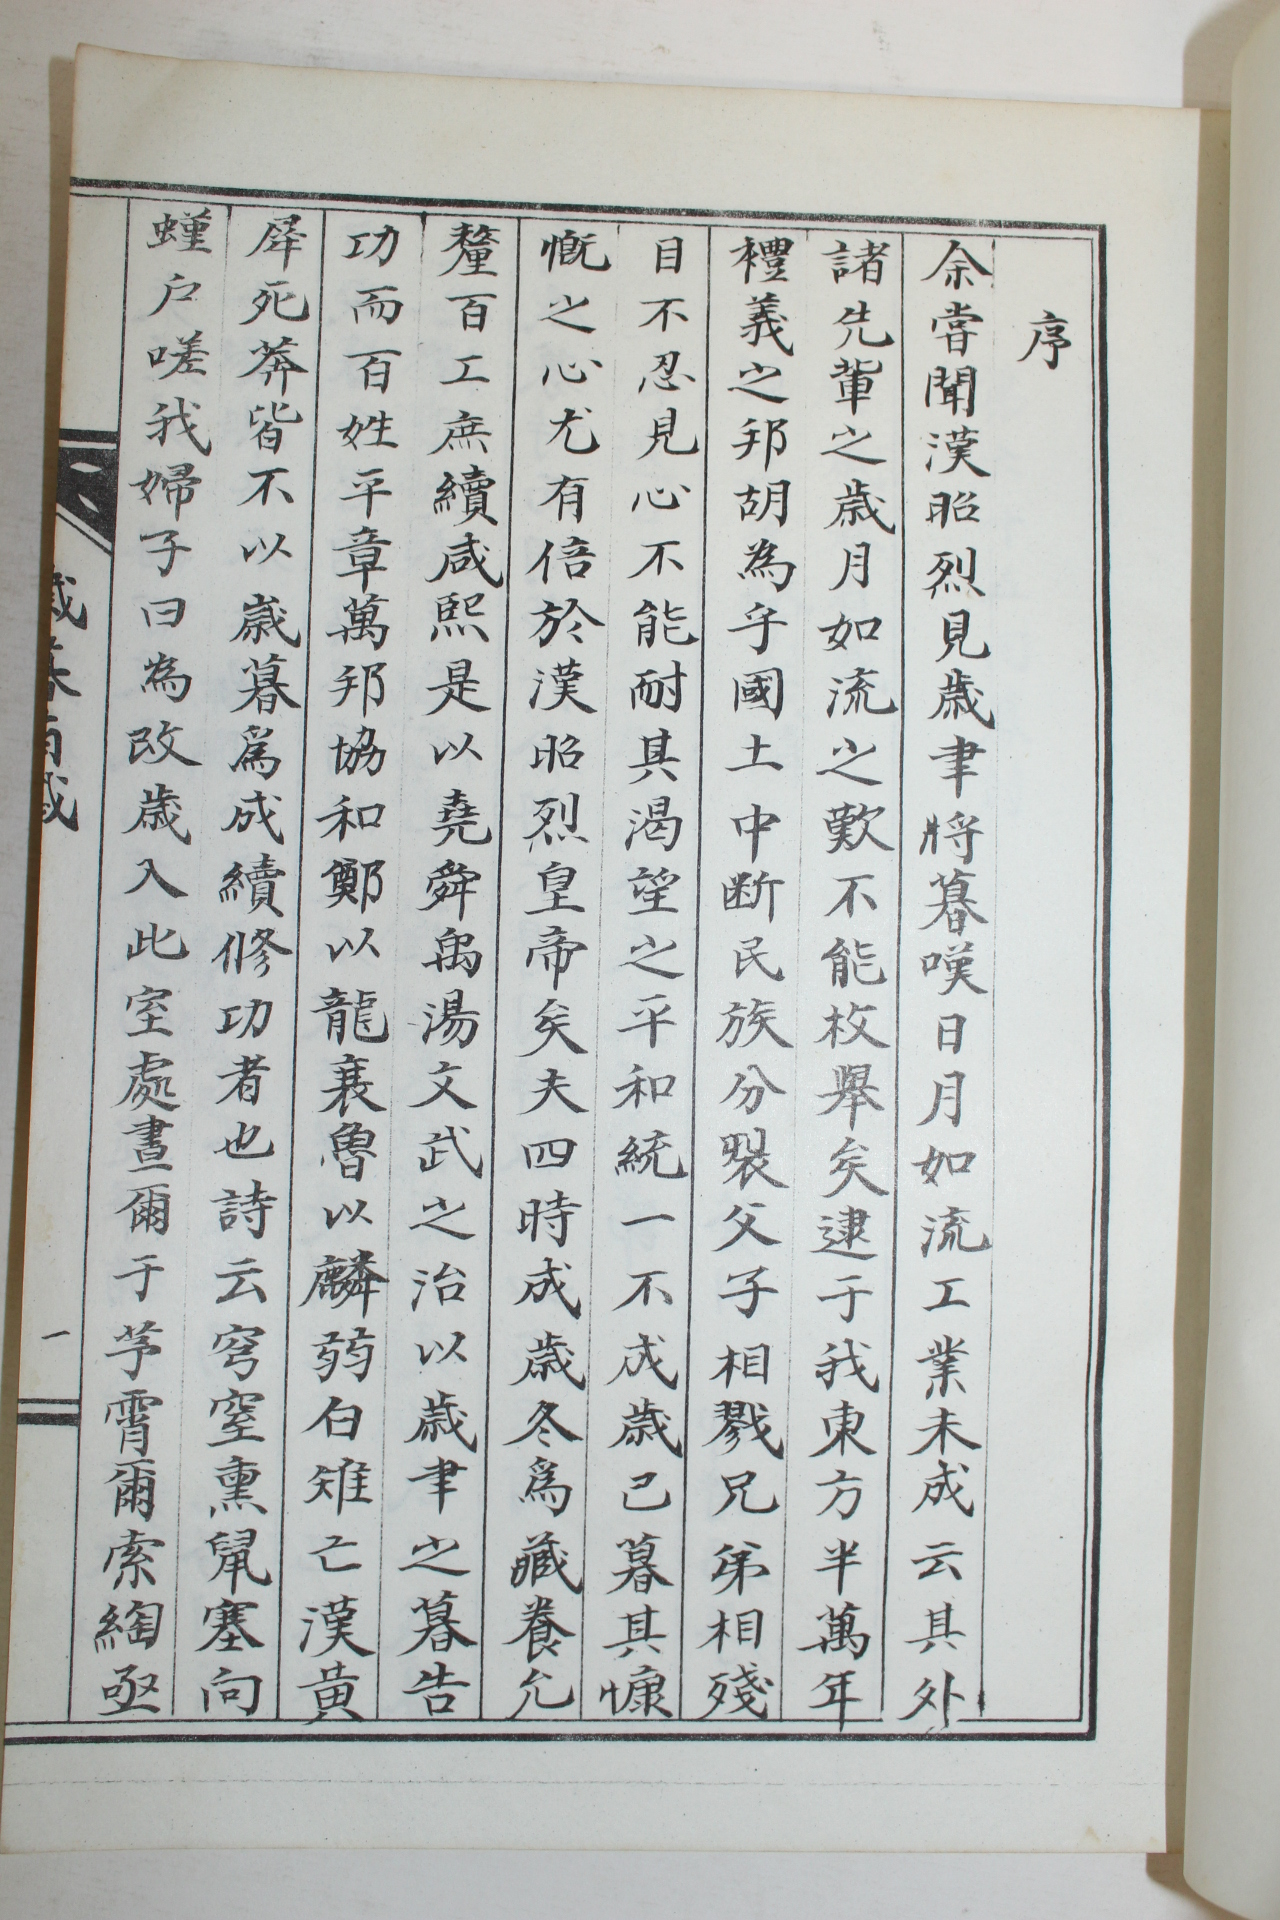 序
余嘗聞漢昭烈見歲聿將暮嘆日月如流工業未成云其外
諸先輩之歲月如流之歎不能枚擧矣逮于我東方半萬年
禮義之邦胡為乎國土中断民族分裂父子相戮兄弟相殘
目不忍見心不能耐其渴望之平和統一不成歲已暮其慷
慨之心尤有倍於漢昭烈皇帝矣夫四時成歲冬爲藏養允
釐百工庶續咸熙是以堯舜禹湯文武之治以歲聿之暮告
功而百姓平章萬邦協和鄭以龍襄魯以麟弱白雉亡漢黄
犀死莽皆不以歲暮爲成續修功者也詩云穹窒熏鼠塞向
墐户嗟我婦子曰為改歲入此室處晝爾于茅霄爾索綯亟
歲暮百感
一